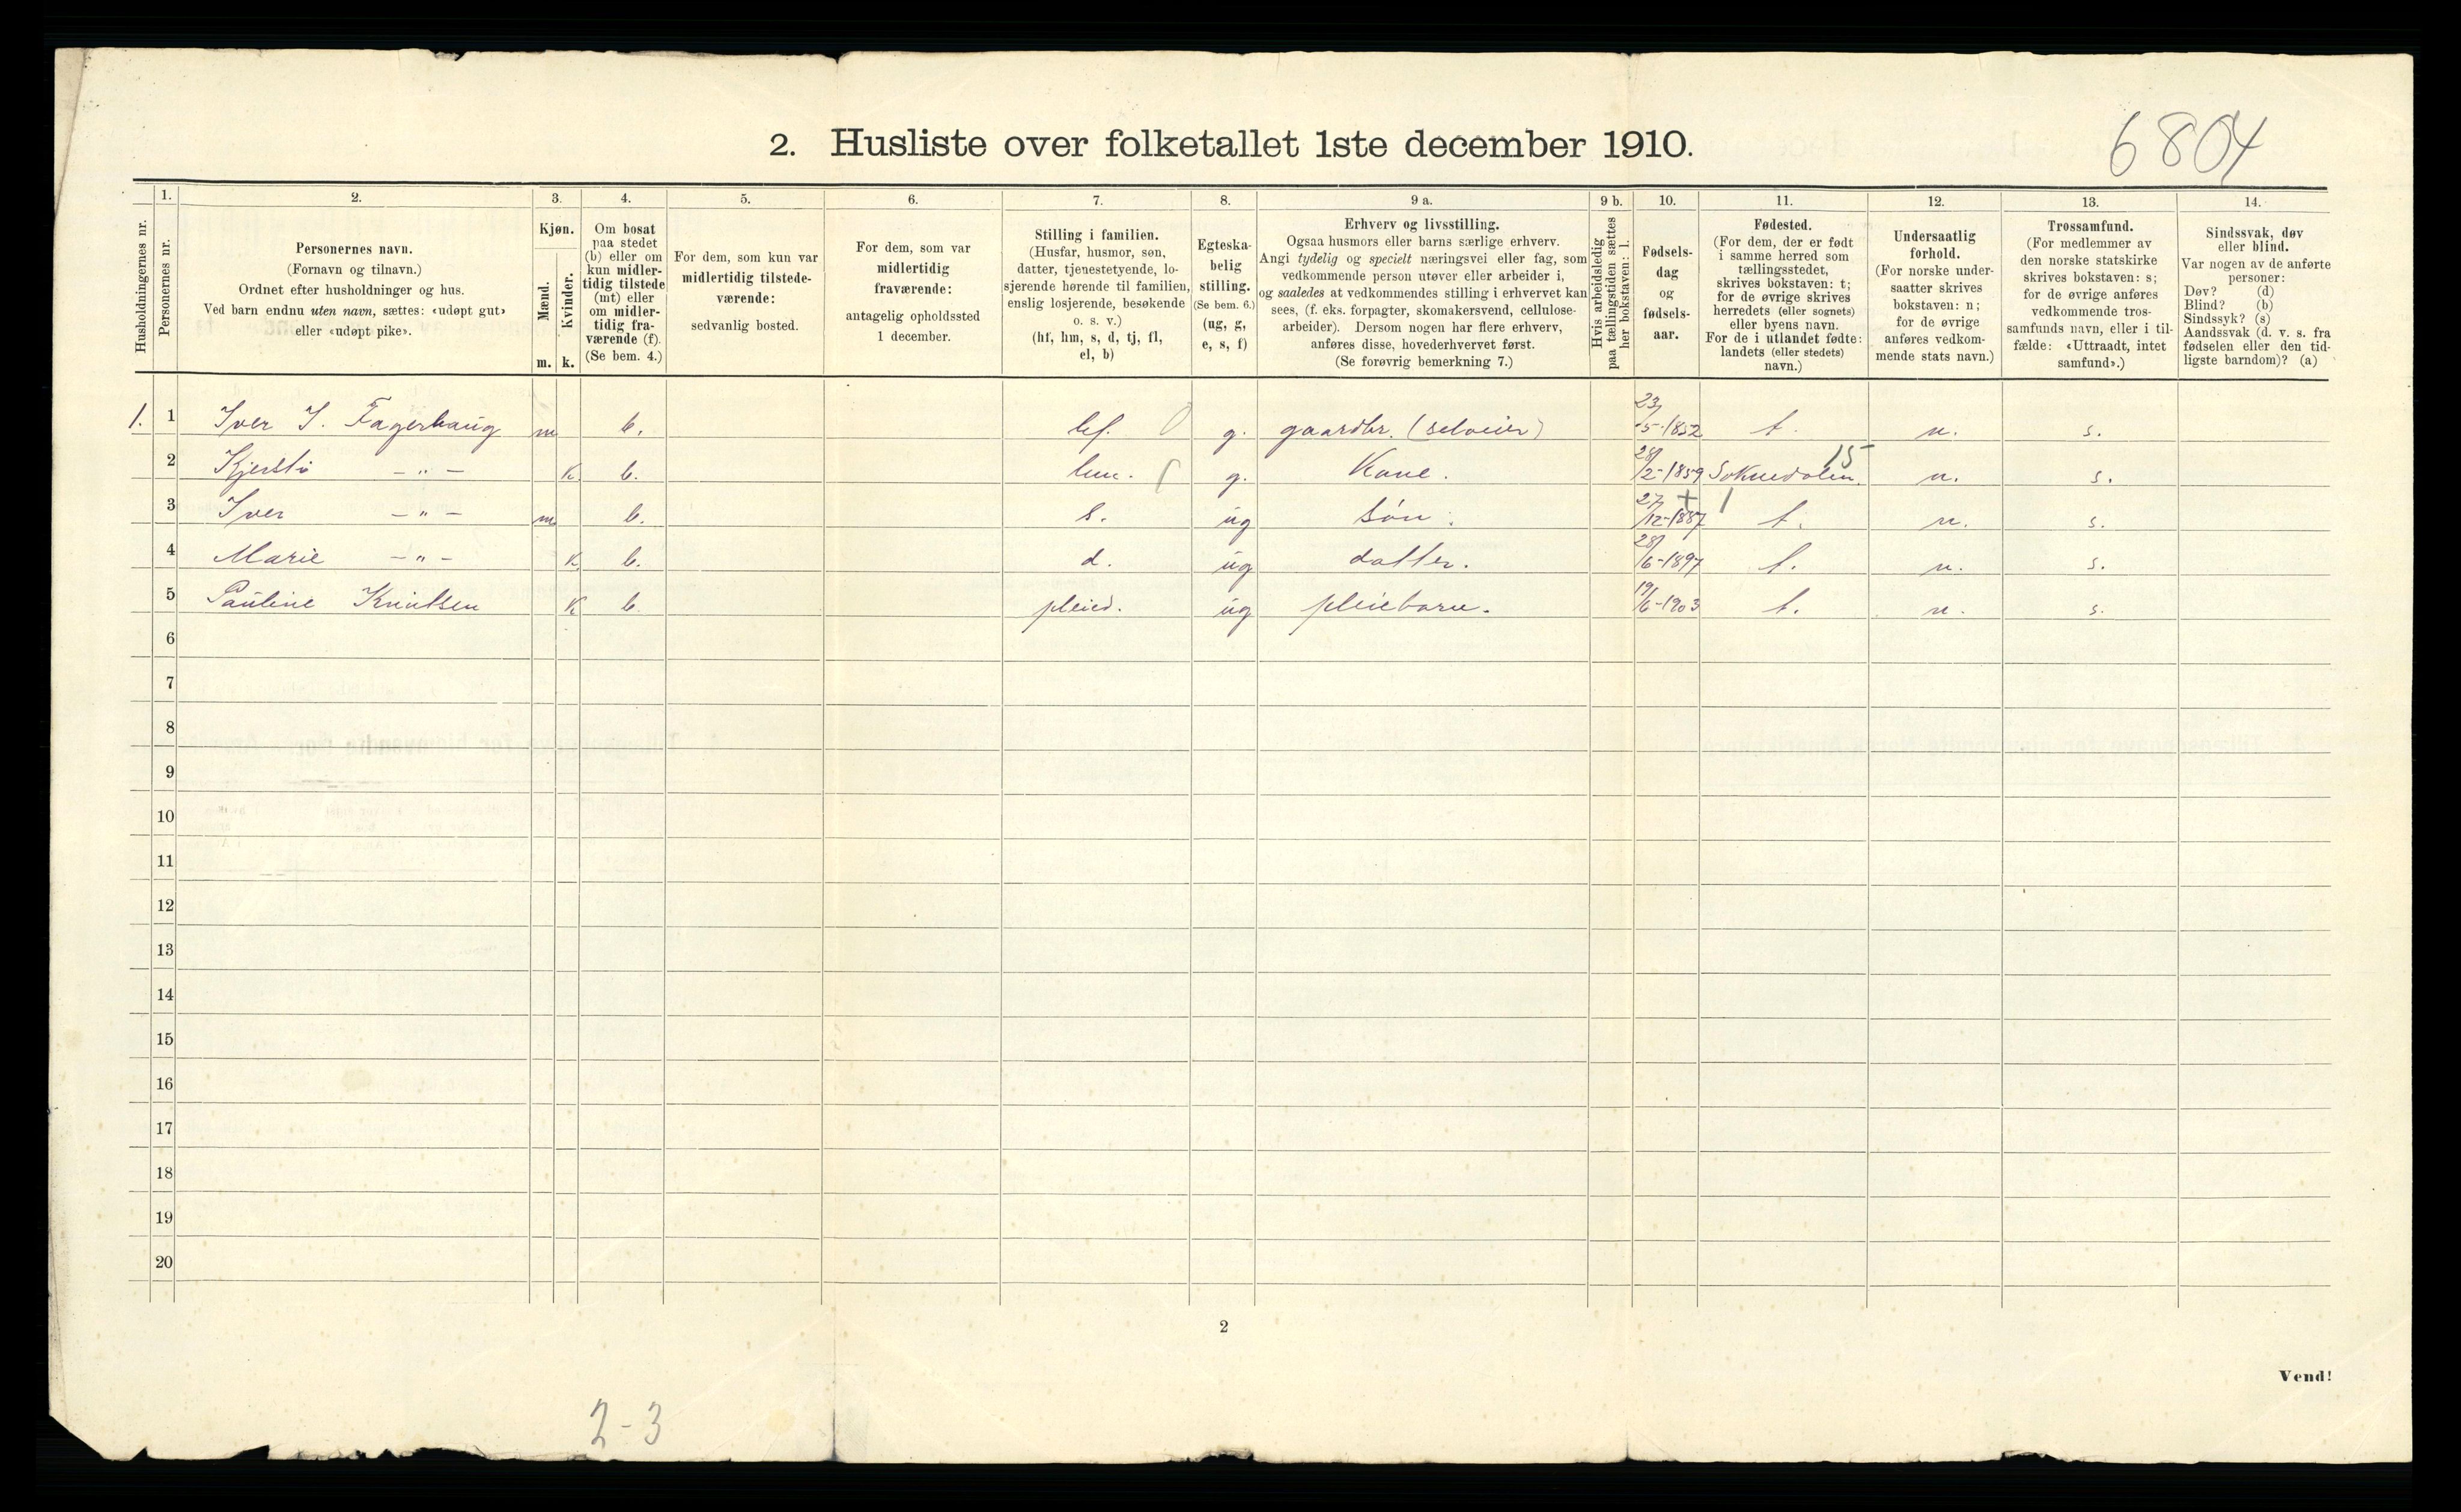 6804
2. Husliste over folketallet 1ste december 1910.
Husholdningernes nr.
1.
Personernes nr.
2.
Personernes navn.
(Fornavn og tilnavn.)
Ordnet efter husholdninger og hus.
Ved barn endnu uten navn, sættes: «udøpt gut»
eller «udøpt pike».
3.
Kjøn.
Mænd.
m.
Kvinder.
k.
4.
Om bosat
paa stedet
(b) eller om
kun midler-
tidig tilstede
(mt) eller
om midler-
tidig fra-
værende (f).
(Se bem. 4.)
5.
For dem, som kun var
midlertidig tilstede-
værende:
sedvanlig bosted.
6.
For dem, som var
midlertidig
fraværende:
antagelig opholdssted
1 december.
7.
Stilling i familien.
(Husfar, husmor, søn,
datter, tjenestetyende, lo-
sjerende hørende til familien,
enslig losjerende, besøkende
o. s. v.)
(hf, hm, s, d, tj, fl,
el, b)
8.
Egteska-
belig
stilling.
(Se bem. 6.)
(ug, g,
e, s, f)
9 a.
Erhverv og livsstilling.
Ogsaa husmors eller barns særlige erhverv.
Angi tydelig og specielt næringsvei eller fag, som
vedkommende person utøver eller arbeider i,
og saaledes at vedkommendes stilling i erhvervet kan
sees, (f. eks. forpagter, skomakersvend, cellulose-
arbeider). Dersom nogen har flere erhverv,
anføres disse, hovederhvervet først.
(Se forøvrig bemerkning 7.)
9 b.
Hvis arbeidsledig
paa tællingstiden sættes
her bokstaven: l.
10.
Fødsels-
dag
og
fødsels-
aar.
11.
Fødested.
(For dem, der er født
i samme herred som
tællingsstedet,
skrives bokstaven: t;
for de øvrige skrives
herredets (eller sognets)
eller byens navn.
For de i utlandet fødte:
landets (eller stedets)
navn.)
12.
Undersaatlig
forhold.
(For norske under-
saatter skrives
bokstaven: n;
for de øvrige
anføres vedkom-
mende stats navn.)
13.
Trossamfund.
(For medlemmer av
den norske statskirke
skrives bokstaven: s;
for de øvrige anføres
vedkommende tros-
samfunds navn, eller i til-
fælde: «Uttraadt, intet
samfund».)
14.
Sindssvak, døv
eller blind.
Var nogen av de anførte
personer:
Døv? (d)
Blind? (b)
Sindssyk? (s)
Aandssvak (d. v. s. fra
fødselen eller den tid-
ligste barndom)? (a)
1. 1 Iver I. Fagerhaug m b. hf. 0 g. gaardbr. (selveier) 23/5-1852 t. n. s.
2 Kjersti -"- k b. hm. g. Kone. 28/2-1859 Soknedalen. 15 n. s.
3 Iver -"- m b. s. ug søn. 27/12-1887 t. n. s.
4 Marie -"- k b. d. ug datter. 28/6-1897 t. n. s.
5 Pauline Knutsen k b. pleied. ug pleiebarn. 19/6-1903 t. n. s.
6
7
8
9
10
11
12
13
14
15
16
17
18
19
20
2
Vend!
2-3